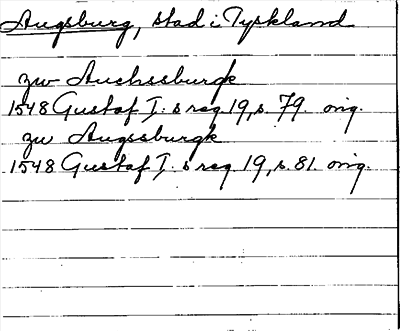 Augsburg, stad i Tyskland
zw Auchssburgk
1548 Gustaf I: s reg 19, s. 79 orig.
zw Augssburgk
1548 Gustaf I: s reg 19, s. 81. orig.